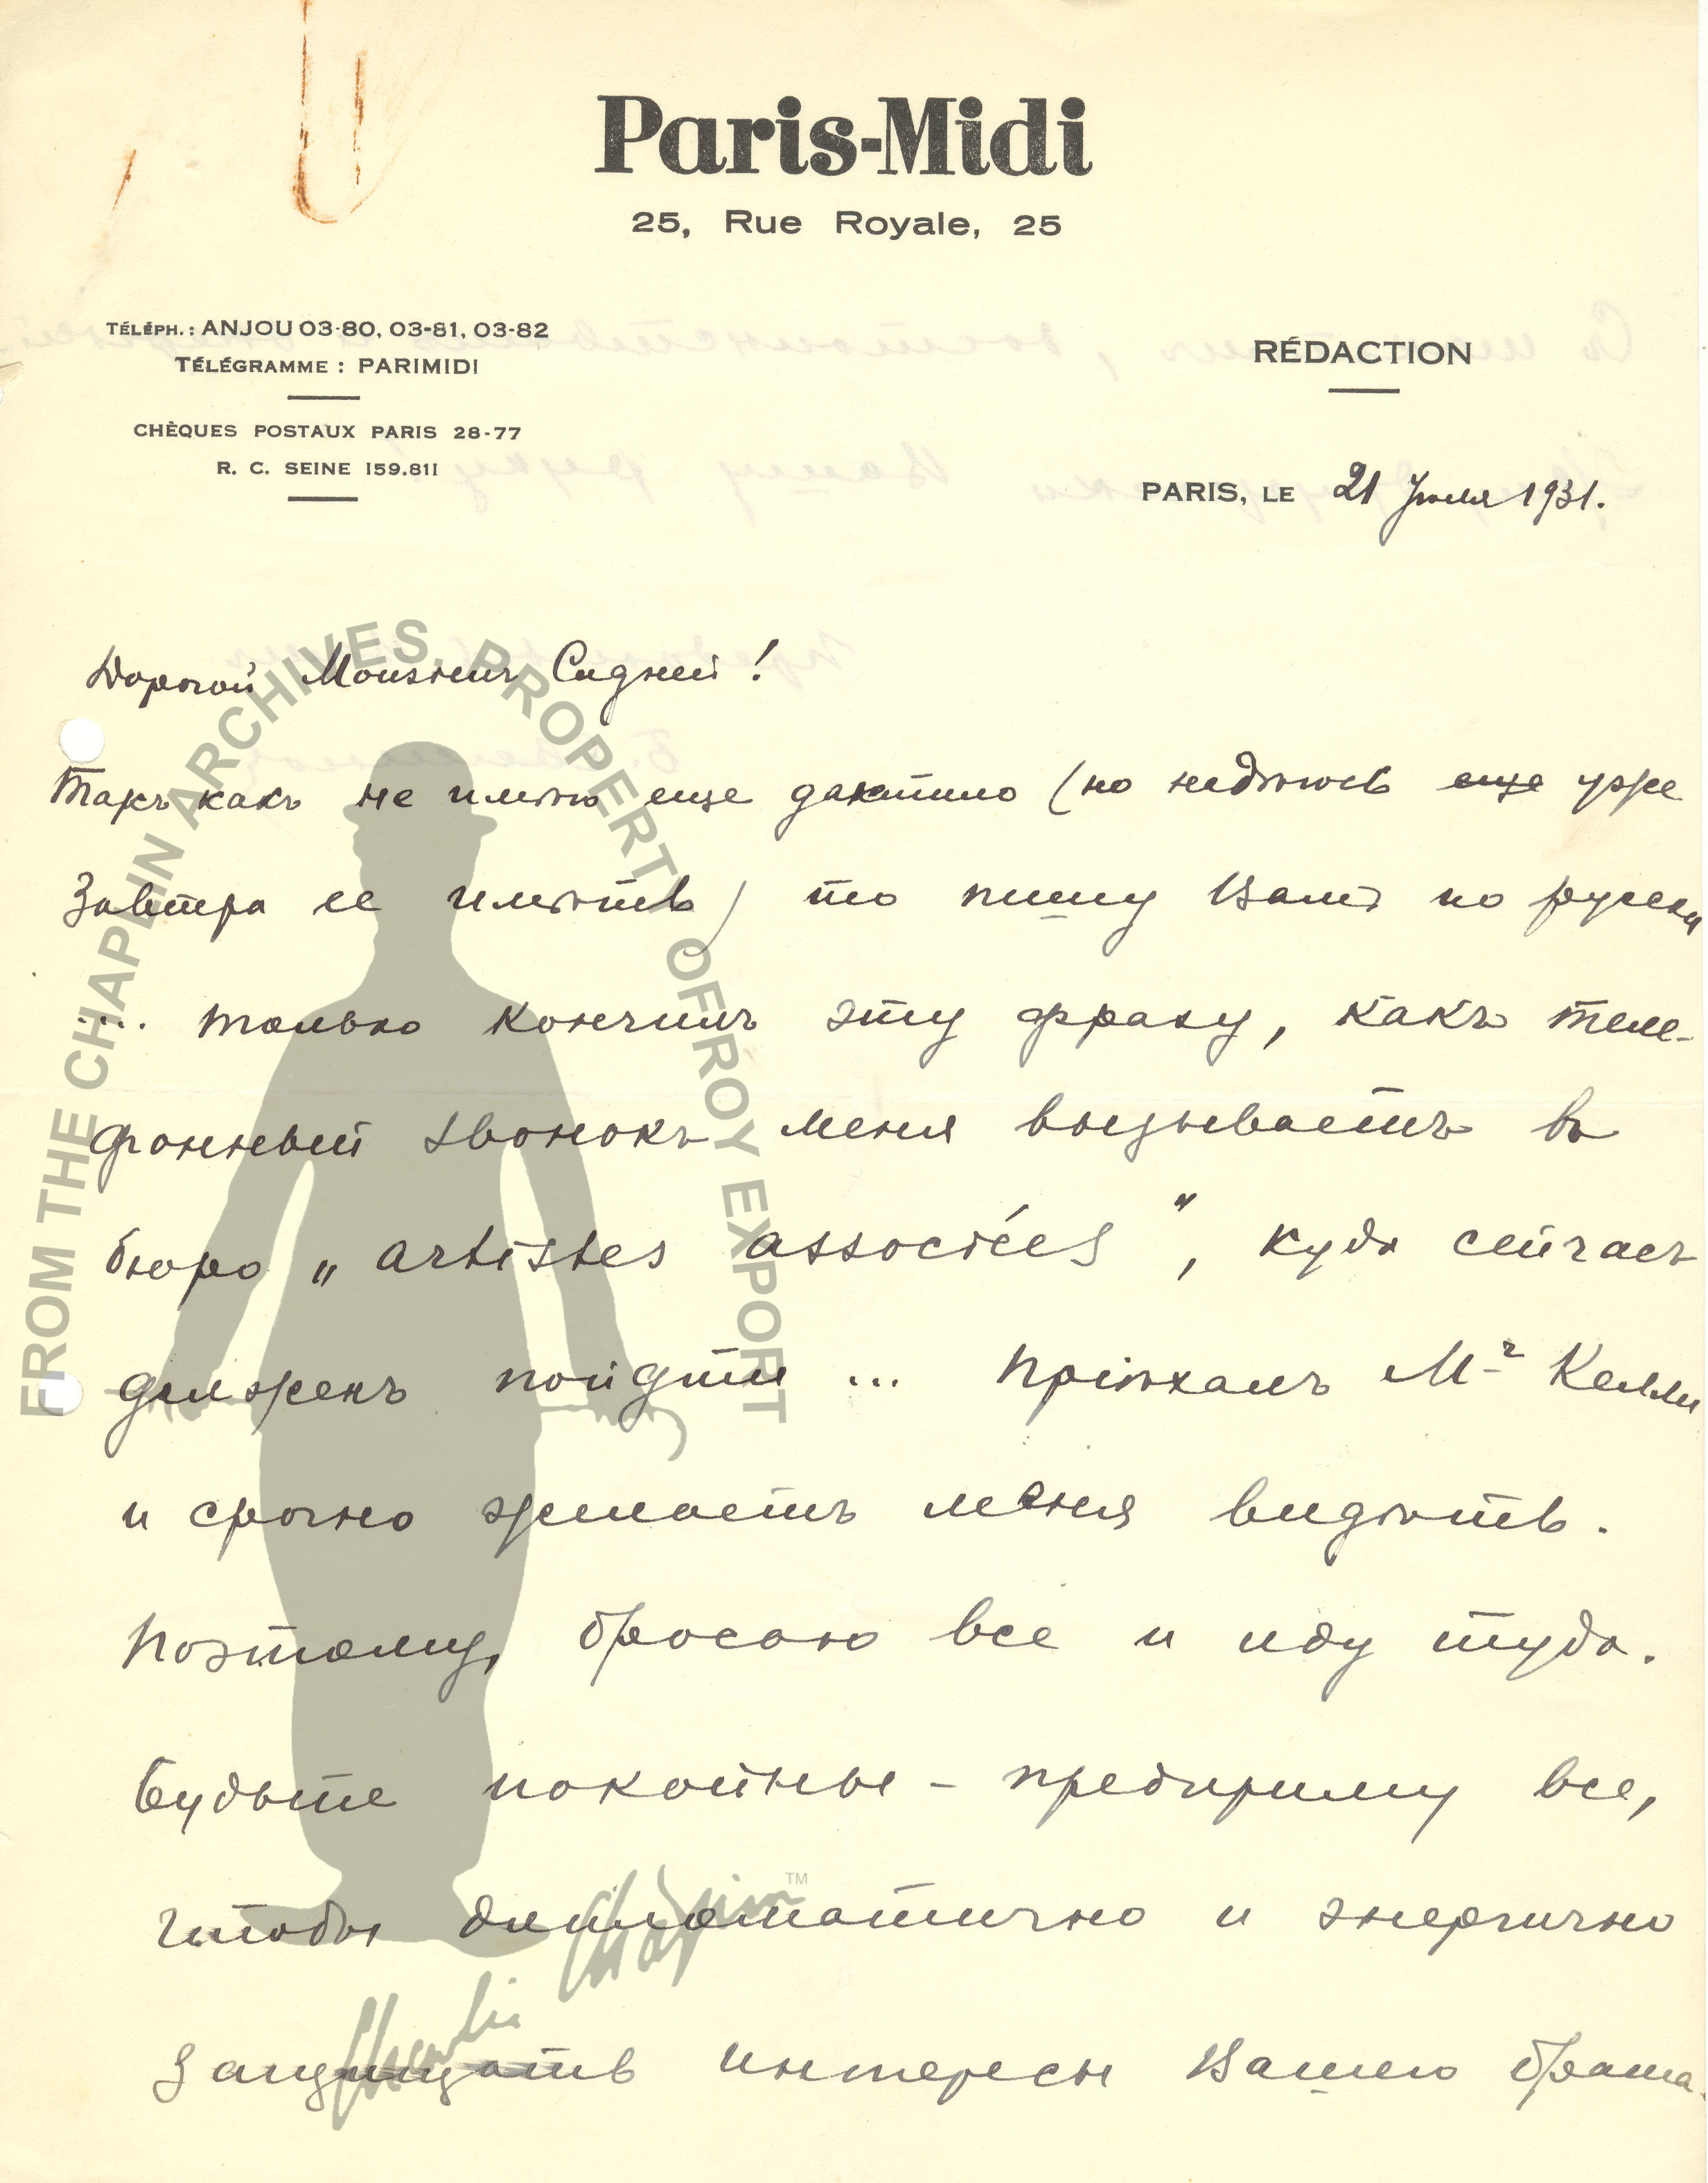 Paris-Midi
25, Rue Royale, 25
TÉLÉPH.: ANJOU 03-80, 03-81, 03-82
TÉLÉGRAMME : PARIMIDI
CHÈQUES POSTAUX PARIS 28-77
R. C. SEINE 159.811
RÉDACTION
PARIS, LE 21 Iюля 1931.
Дорогой Monsieur Сидней!
Такъ какъ не имѣю еще дактило (но надѣюсь еще уже
завтра ее имѣть) то пишу Вамъ по русски
.... только кончилъ эту фразу, какъ теле-
фонный звонокъ меня вызываетъ въ
бюро „artistes associées", куда сейчасъ
долженъ пойдти ... Пріѣхалъ Mr Келли
и срочно желаетъ меня видѣть.
Поэтому, бросаю все и иду туда.
Будьте покойны - предприму все,
чтобы дипломатично и энергично
защищать интересы Вашего брата.
FROM THE CHAPLIN ARCHIVES, PROPERTY OF ROY EXPORT
Charlie Chaplin™